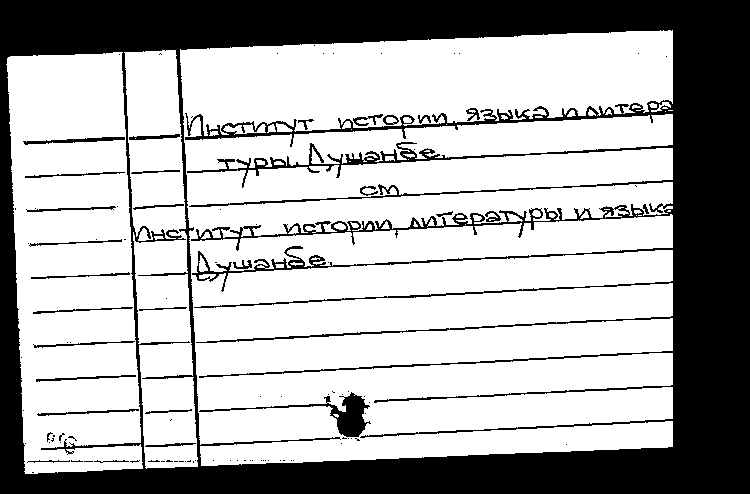 Институт истории, языка и литера
туры. Душанбе.
см.
Институт истории, литературы и языка
Душанбе.